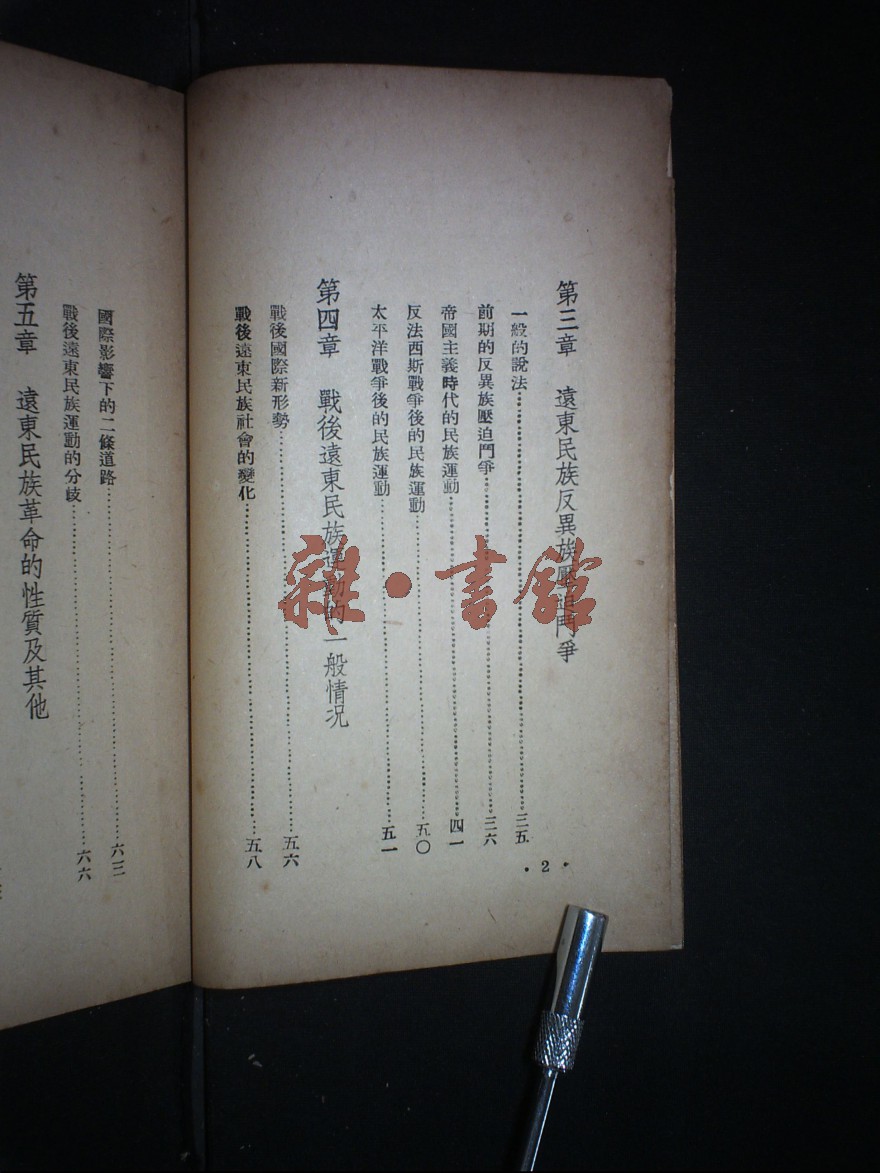 第三章 遠東民族反異族壓迫鬥爭
一般的說法……三五
前期的反異族壓迫鬥爭……三六
帝國主義時代的民族運動……四一
反法西斯戰爭後的民族運動……五〇
太平洋戰爭後的民族運動……五一
第四章 戰後遠東民族運動的一般情況
戰後國際新形勢……五六
戰後遠東民族社會的變化……五八
·2·
國際影響下的二條道路……六三
戰後遠東民族運動的分歧……六六
第五章 遠東民族革命的性質及其他
雜·書館